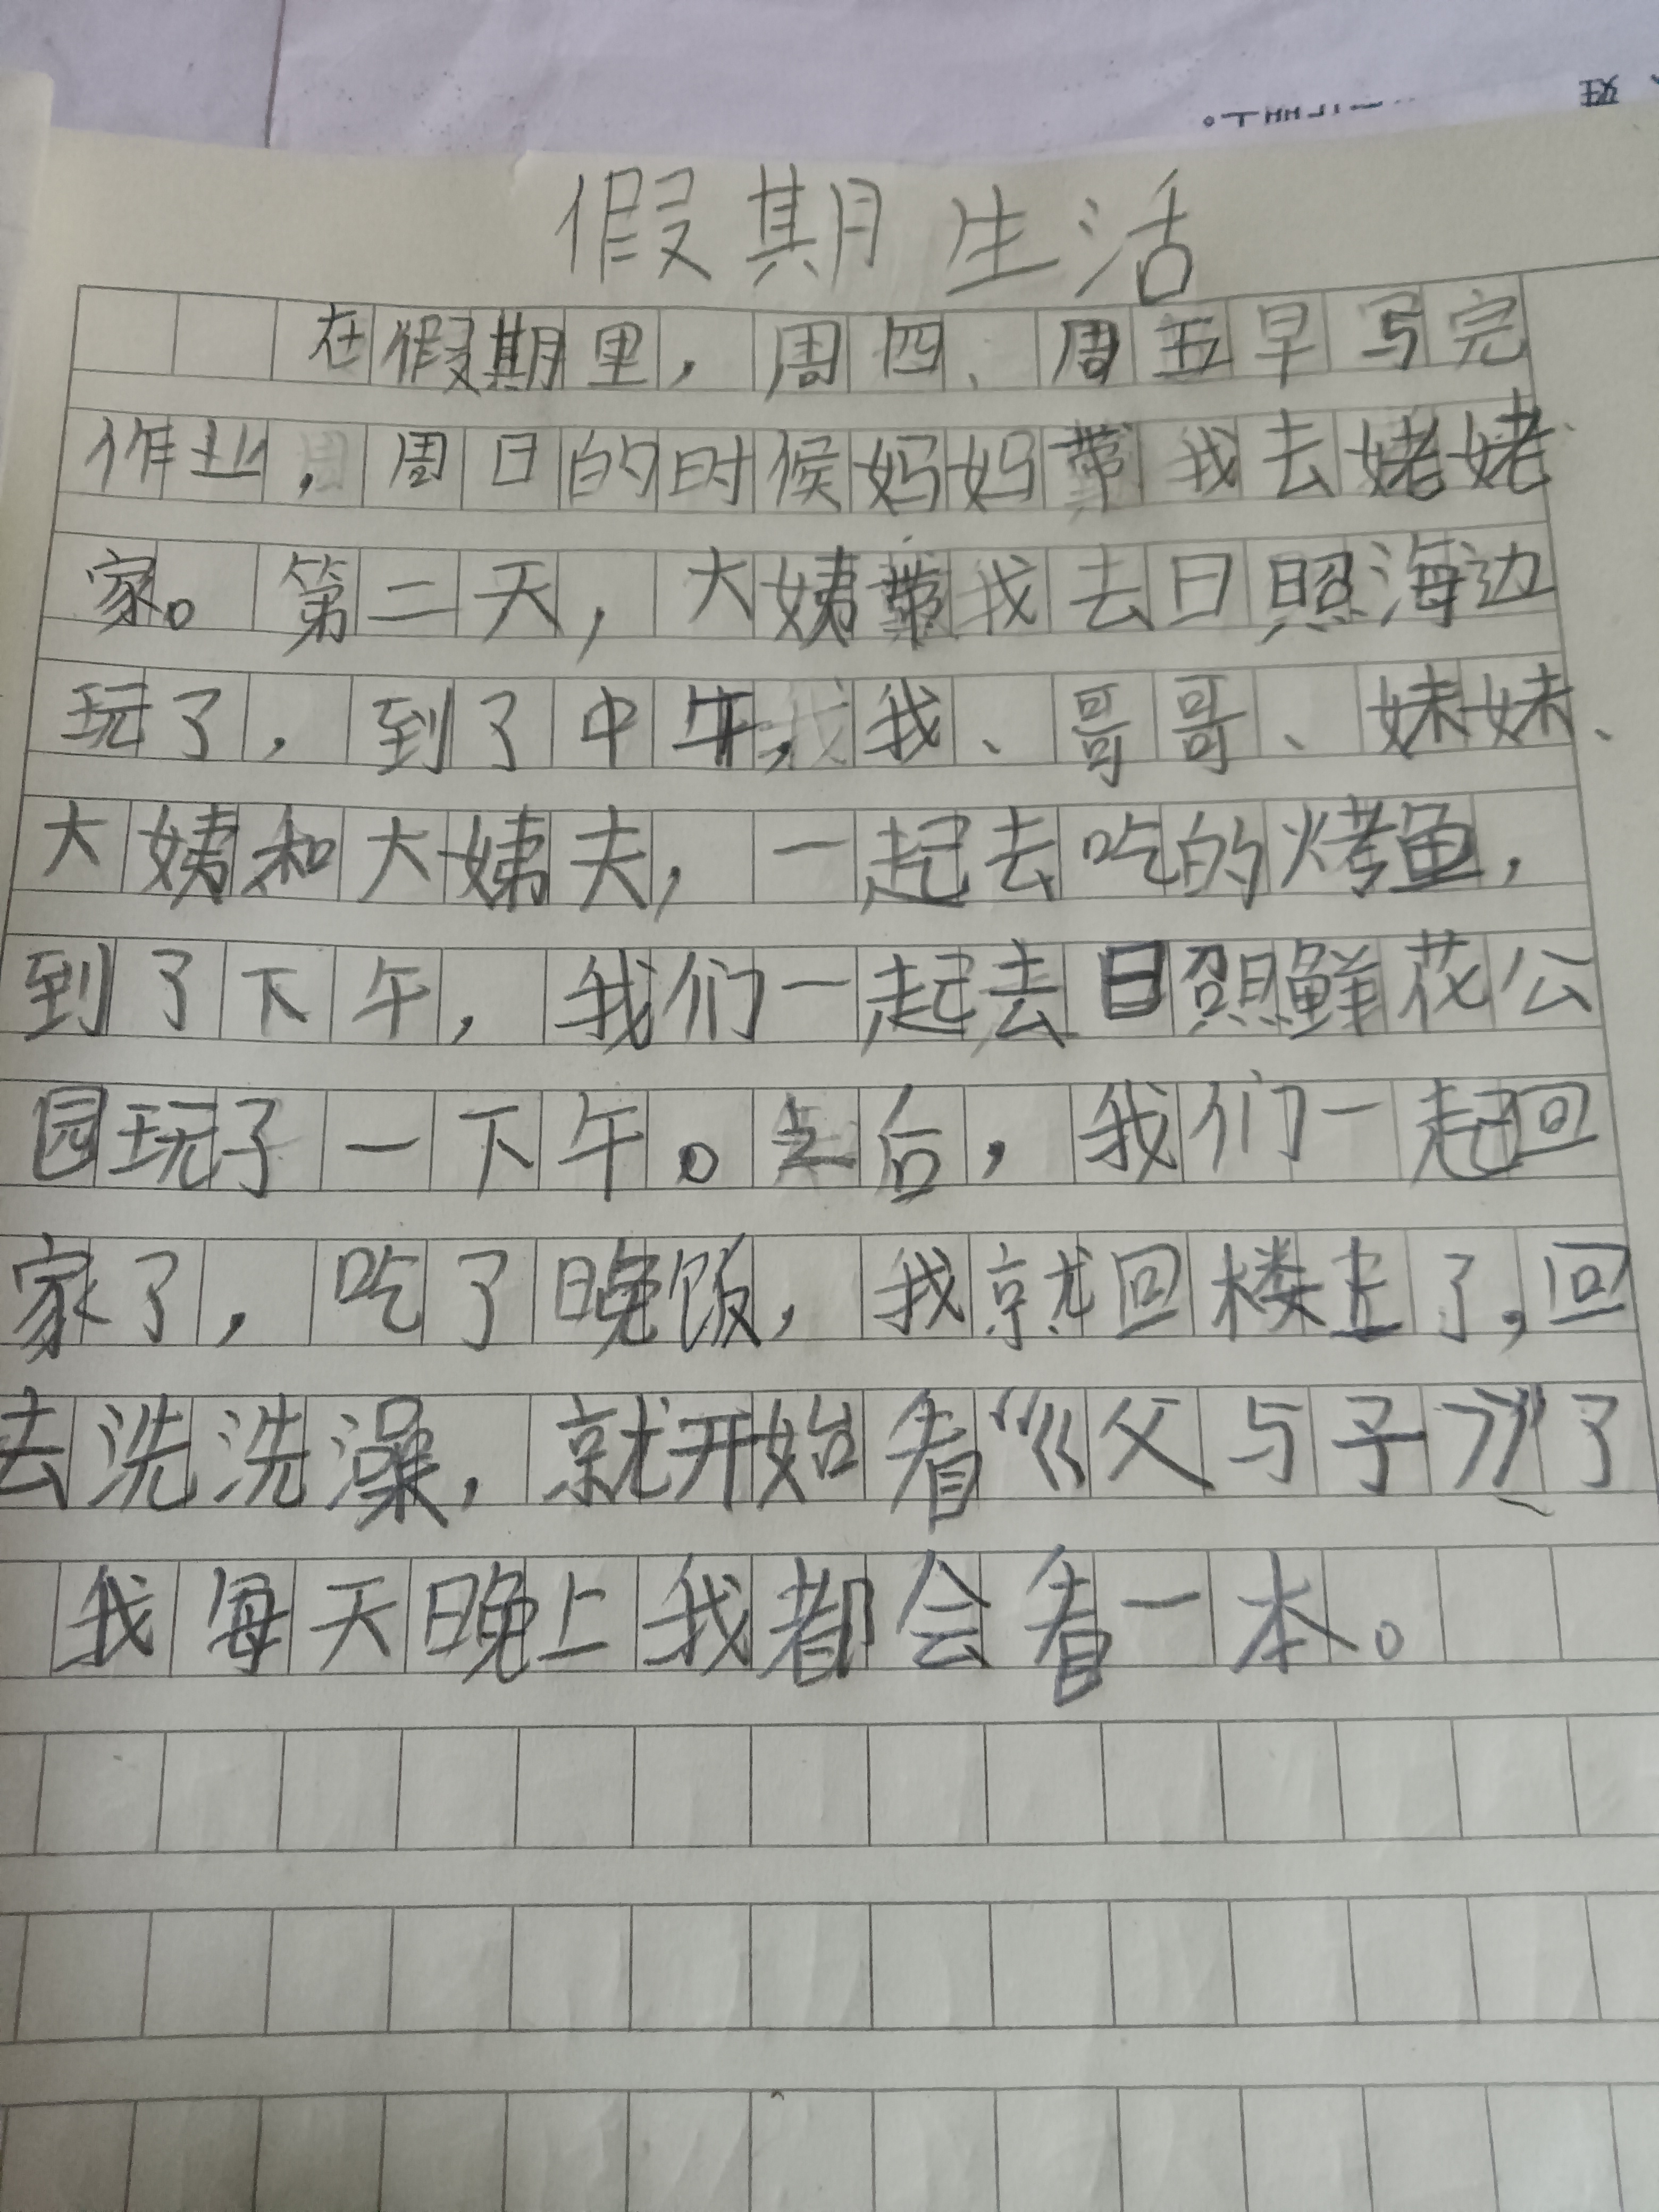 假期生活
在假期里，周四、周五早写完
作业，周日的时候妈妈带我去姥姥
家。第二天，大姨带我去日照海边
玩了，到了中午，我、哥哥、妹妹、
大姨和大姨夫，一起去吃的烤鱼，
到了下午，我们一起去日照鲜花公
园玩了一下午。之后，我们一起回
家了，吃了晚饭，我就回楼上了，回
去洗洗澡，就开始看“《父与子》”了
我每天晚上我都会看一本。